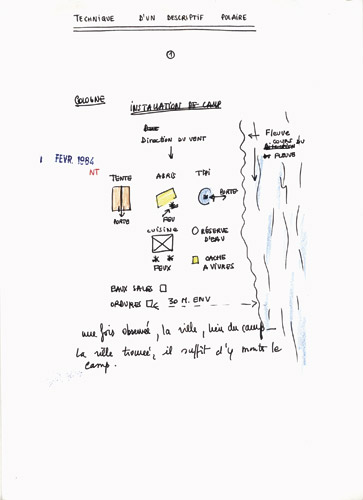 TECHNIQUE D'UN DESCRIPTIF POLAIRE
1
COLOGNE
INSTALLATION DE CAMP
DIRECTION DU VENT
FLEUVE
COURS DU
FLEUVE
1 FEVR. 1984
NT
TENTE
ABRIS
TIPI
PORTE
PORTE
FEU
CUISINE
FEUX
RÉSERVE
D'EAU
CACHE
A VIVRES
EAUX SALES
ORDURES
30 M. ENV
une fois observée, la ville, lieu du camp
La ville trouvée, il suffit d'y monter le
camp.